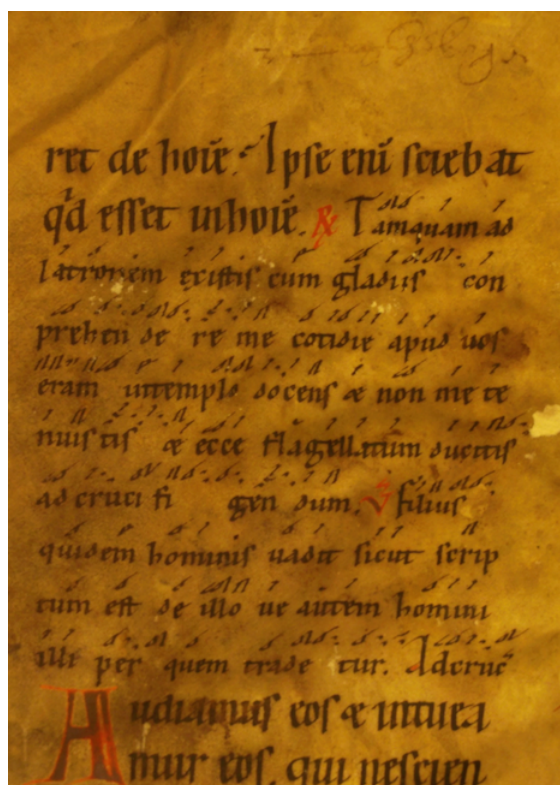 ret de hoīe. Ipse enī sciebat
qͥd esset inhoīe. ℟ Tamquam ad
latronem existis cum gladiis con
prehen de re me cotidie apud uos
eram intemplo docens & non me te
nuis tis & ecce flagellatum ducitis
ad cruci fi gen dum. ℣ filius
quidem hominis uadit sicut scrip
tum est de illo ue autem homini
illi per quem trade tur. Adcruc̄
Audiamus eos & intuea
mur eos. qui nescien